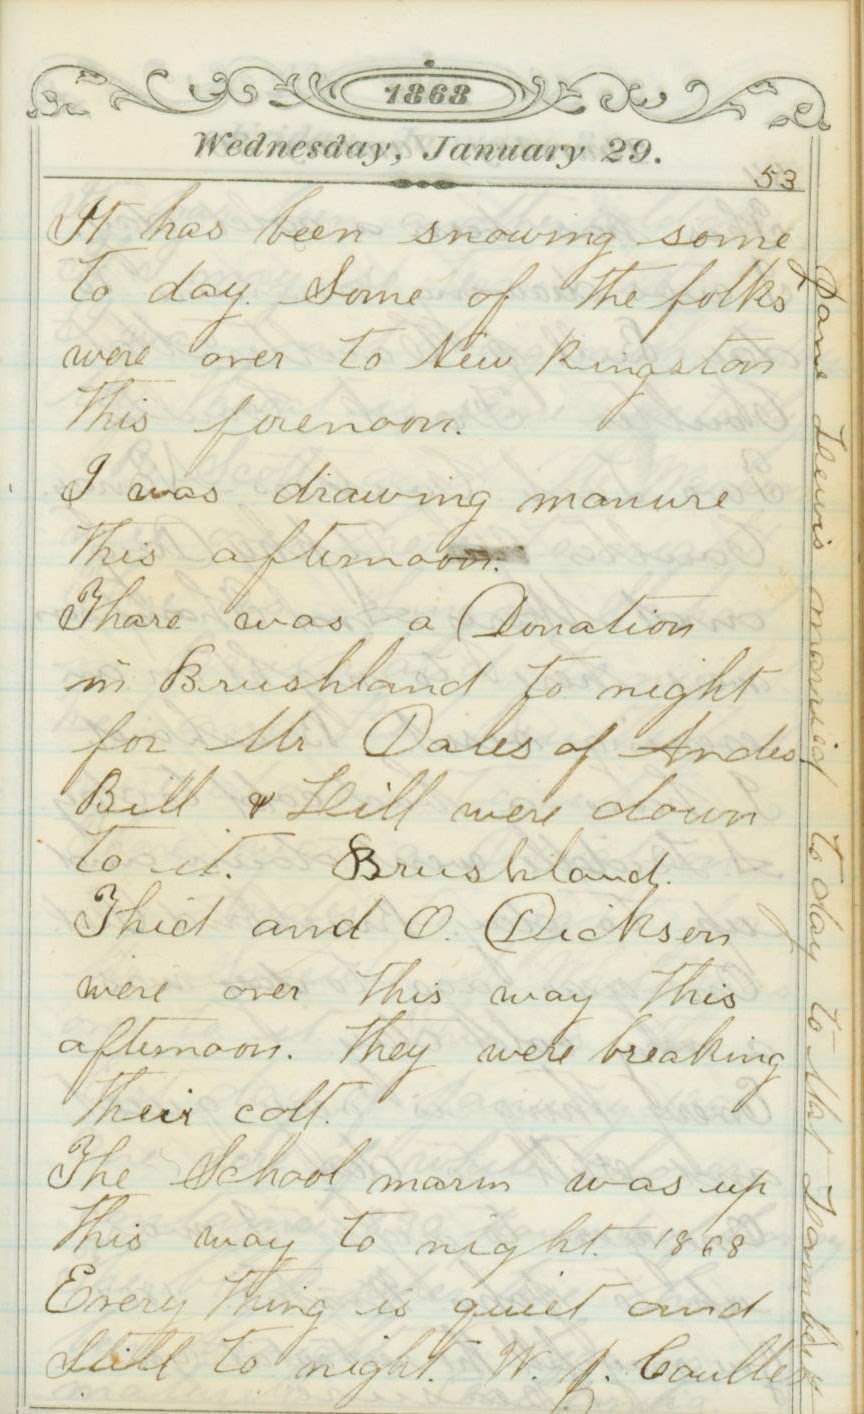 1868
Wednesday, January 29.
53
It has been snowing some
to day. Some of the folks
were over to New Kingston
this forenoon.
I was drawing manure
this afternoon.
Thare was a Donation
in Brushland to night
for Mr Dales of Andes
Bill & Hill were down
to it. Brushland.
Thid and O. Dickson
were over this way this
afternoon. they were breaking
their colt.
The School marm was up
this way to night. 1868
Every thing is quiet and
still to night. W. J. Coulter
Jane married to day to Mat